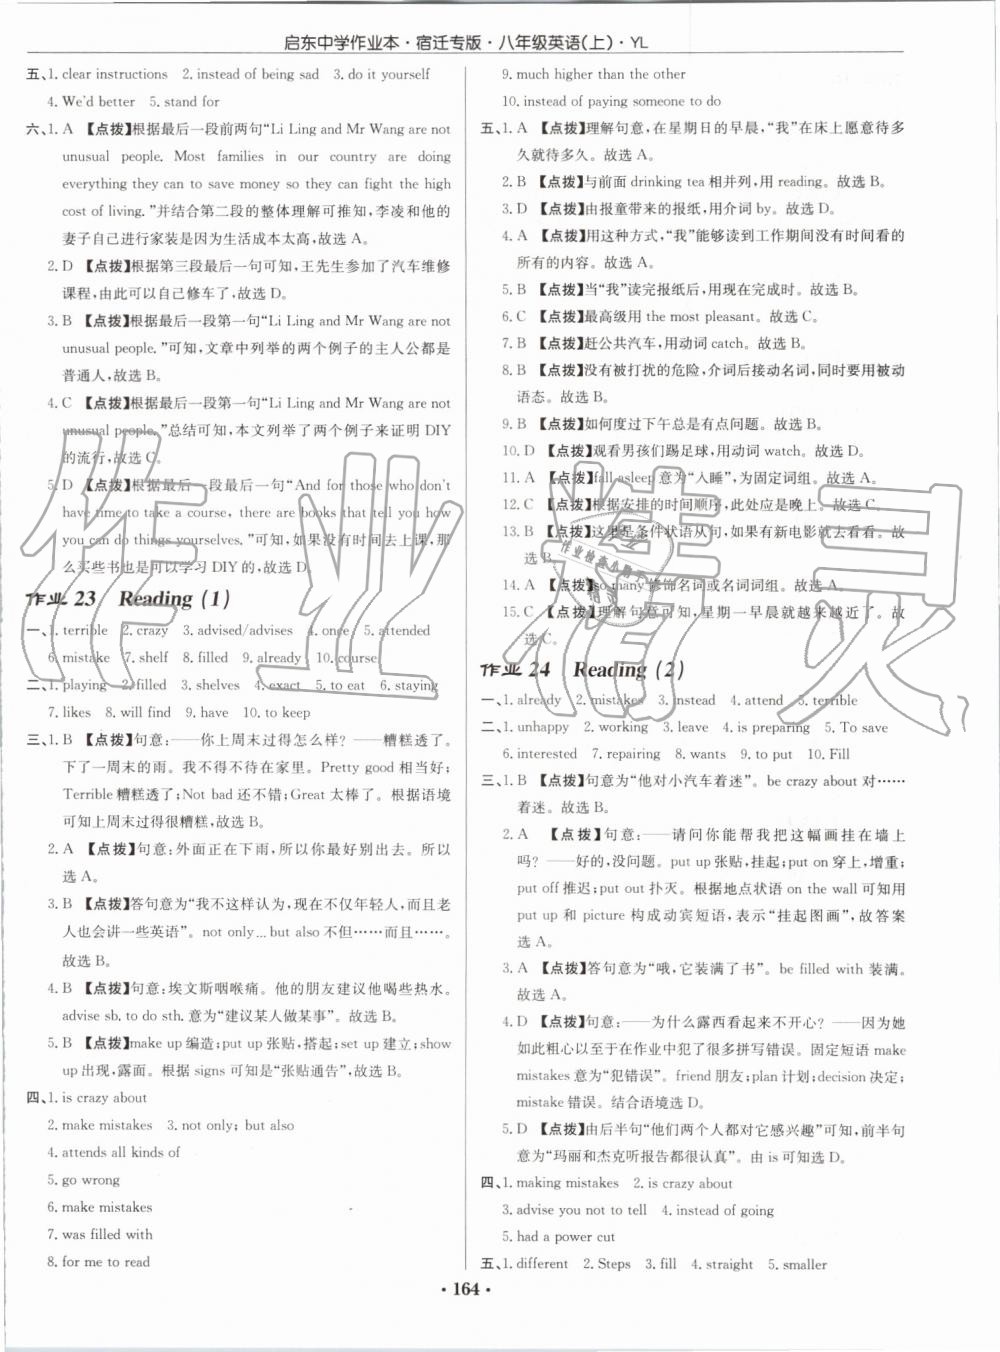 启东中学作业本·宿迁专版·八年级英语(上)·YL
五、1. clear instructions 2. instead of being sad 3. do it yourself
4. We'd better 5. stand for
六、1. A 【点拨】根据最后一段前两句“Li Ling and Mr Wang are not
unusual people. Most families in our country are doing
everything they can to save money so they can fight the high
cost of living. ”并结合第二段的整体理解可推知,李凌和他的
妻子自己进行家装是因为生活成本太高,故选 A。
2. D 【点拨】根据第三段最后一句可知,王先生参加了汽车维修
课程,由此可以自己修车了,故选 D。
3. B 【点拨】根据最后一段第一句“Li Ling and Mr Wang are not
unusual people. ”可知,文章中列举的两个例子的主人公都是
普通人,故选 B。
4. C 【点拨】根据最后一段第一句“Li Ling and Mr Wang are not
unusual people. ”总结可知,本文列举了两个例子来证明 DIY
的流行,故选 C。
5. D 【点拨】根据最后一段最后一句“And for those who don't
have time to take a course, there are books that tell you how
you can do things yourselves. ”可知,如果没有时间去上课,那
么买些书也是可以学习 DIY 的,故选 D。
作业 23 Reading (1)
一、1. terrible 2. crazy 3. advised/advises 4. once 5. attended
6. mistake 7. shelf 8. filled 9. already 10. course
二、1. playing 2. filled 3. shelves 4. exact 5. to eat 6. staying
7. likes 8. will find 9. have 10. to keep
三、1. B 【点拨】句意:——你上周末过得怎么样? ——糟糕透了。
下了一周末的雨。我不得不待在家里。Pretty good 相当好;
Terrible糟糕透了;Not bad 还不错;Great 太棒了。根据语境
可知上周末过得很糟糕,故选 B。
2. A 【点拨】句意:外面正在下雨,所以你最好别出去。所以
选 A。
3. B 【点拨】答句意为“我不这样认为,现在不仅年轻人,而且老
人也会讲一些英语”。not only... but also 不但……而且……。
故选 B。
4. B 【点拨】句意:埃文斯咽喉痛。他的朋友建议他喝些热水。
advise sb. to do sth. 意为“建议某人做某事”。故选 B。
5. B 【点拨】make up 编造;put up张贴,搭起;set up 建立;show
up出现,露面。根据 signs 可知是“张贴通告”,故选 B。
四、1. is crazy about
2. make mistakes 3. not only; but also
4. attends all kinds of
5. go wrong
6. make mistakes
7. was filled with
8. for me to read
9. much higher than the other
10. instead of paying someone to do
五、1. A 【点拨】理解句意,在星期日的早晨,“我”在床上愿意待多
久就待多久。故选 A。
2. B 【点拨】与前面 drinking tea 相并列,用 reading。故选 B。
3. D 【点拨】由报童带来的报纸,用介词 by。故选 D。
4. A 【点拨】用这种方式,“我”能够读到工作期间没有时间看的
所有的内容。故选 A。
5. B 【点拨】当“我”读完报纸后,用现在完成时。故选 B。
6. C 【点拨】最高级用 the most pleasant。故选 C。
7. B 【点拨】赶公共汽车,用动词 catch。故选 B。
8. B 【点拨】没有被打扰的危险,介词后接动名词,同时要用被动
语态。故选 B。
9. B 【点拨】如何度过下午总是有点问题。故选 B。
10. D 【点拨】观看男孩们踢足球,用动词 watch。故选 D。
11. A 【点拨】fall asleep 意为“入睡”,为固定词组。故选 A。
12. C 【点拨】根据安排的时间顺序,此处应是晚上。故选 C。
13. B 【点拨】这里是条件状语从句,如果有新电影就去看看。故
选 B。
14. A 【点拨】so many 修饰名词或名词词组。故选 A。
15. C 【点拨】理解句意可知,星期一早晨就越来越近了。故
选 C。
作业 24 Reading (2)
一、1. already 2. mistakes 3. instead 4. attend 5. terrible
二、1. unhappy 2. working 3. leave 4. is preparing 5. To save
6. interested 7. repairing 8. wants 9. to put 10. Fill
三、1. B 【点拨】句意为“他对小汽车着迷”。be crazy about 对……
着迷。故选 B。
2. A 【点拨】句意:——请问你能帮我把这幅画挂在墙上
吗? ——好的,没问题。put up 张贴,挂起;put on 穿上,增重;
put off 推迟;put out 扑灭。根据地点状语 on the wall 可知用
put up 和 picture 构成动宾短语,表示“挂起图画”,故答案
选 A。
3. A 【点拨】答句意为“哦,它装满了书”。be filled with 装满。
故选 A。
4. D 【点拨】句意:——为什么露西看起来不开心? ——因为她
如此粗心以至于在作业中犯了很多拼写错误。固定短语 make
mistakes 意为“犯错误”。friend 朋友;plan 计划;decision 决定;
mistake 错误。结合语境选 D。
5. D 【点拨】由后半句“他们两个人都对它感兴趣”可知,前半句
意为“玛丽和杰克听报告都很认真”。由 is 可知选 D。
四、1. making mistakes 2. is crazy about
3. advise you not to tell 4. instead of going
5. had a power cut
五、1. different 2. Steps 3. fill 4. straight 5. smaller
· 164 ·
作业精灵
作业检查小助手